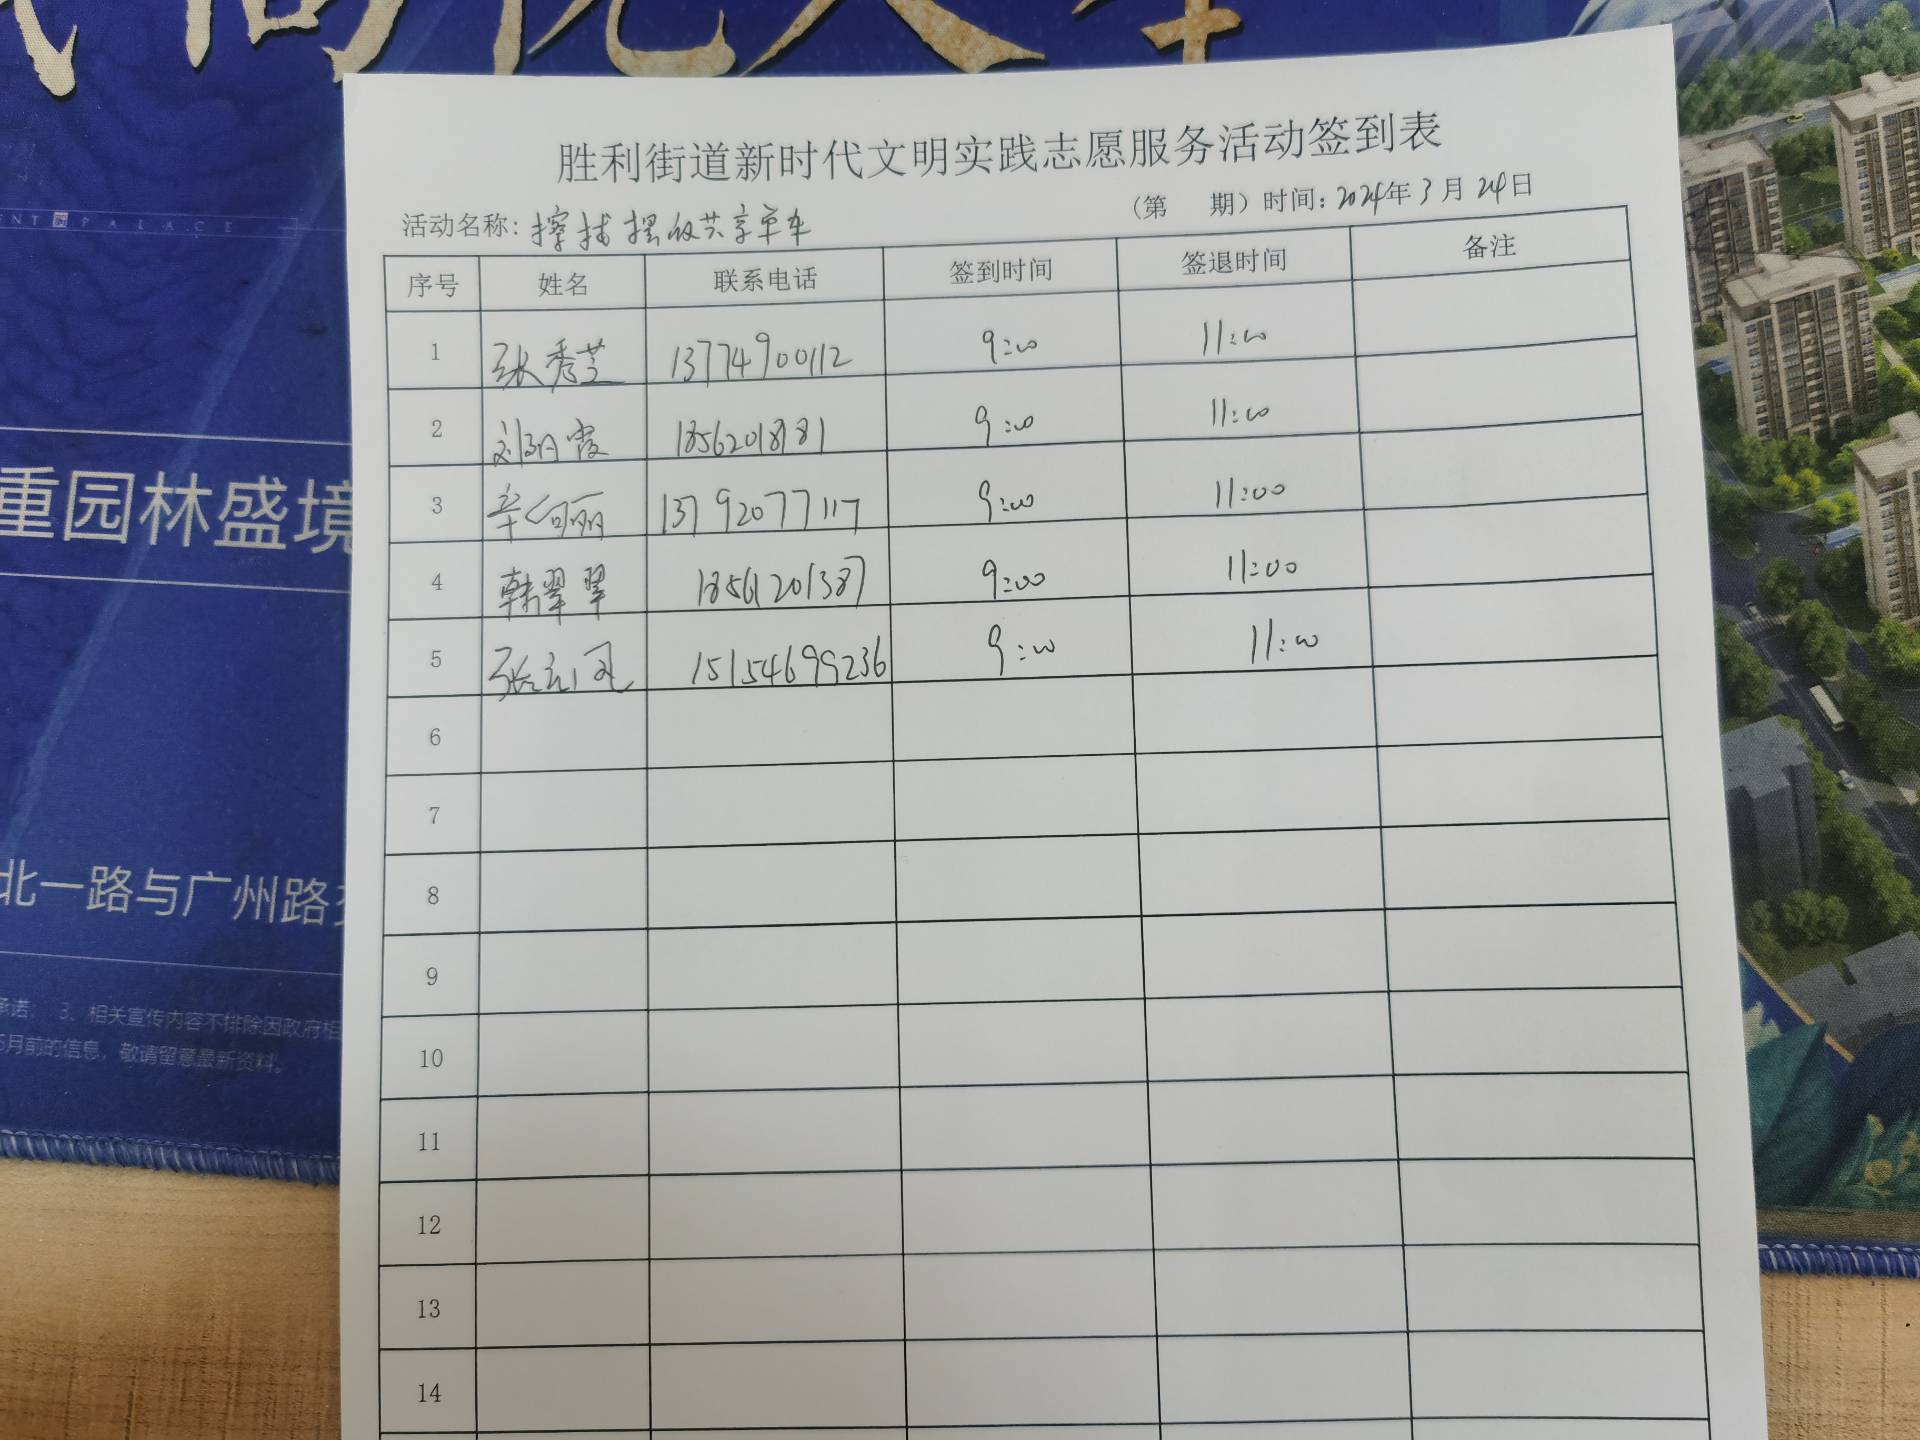 ENT PALACE
重园林盛境
北一路与广州路
承诺； 3、相关宣传内容不排除因政府相
月前的信息，敬请留意最新资料。
胜利街道新时代文明实践志愿服务活动签到表
（第 期）时间：2024年3月24日
活动名称：擦拭摆放共享单车
序号 姓名 联系电话 签到时间 签退时间 备注
1 张秀芝 13774900112 9:00 11:00
2 刘丽霞 18562018181 9:00 11:00
3 辛向丽 13792077117 9:00 11:00
4 韩翠翠 18561201387 9:00 11:00
5 张元凤 15154699236 9:00 11:00
6
7
8
9
10
11
12
13
14